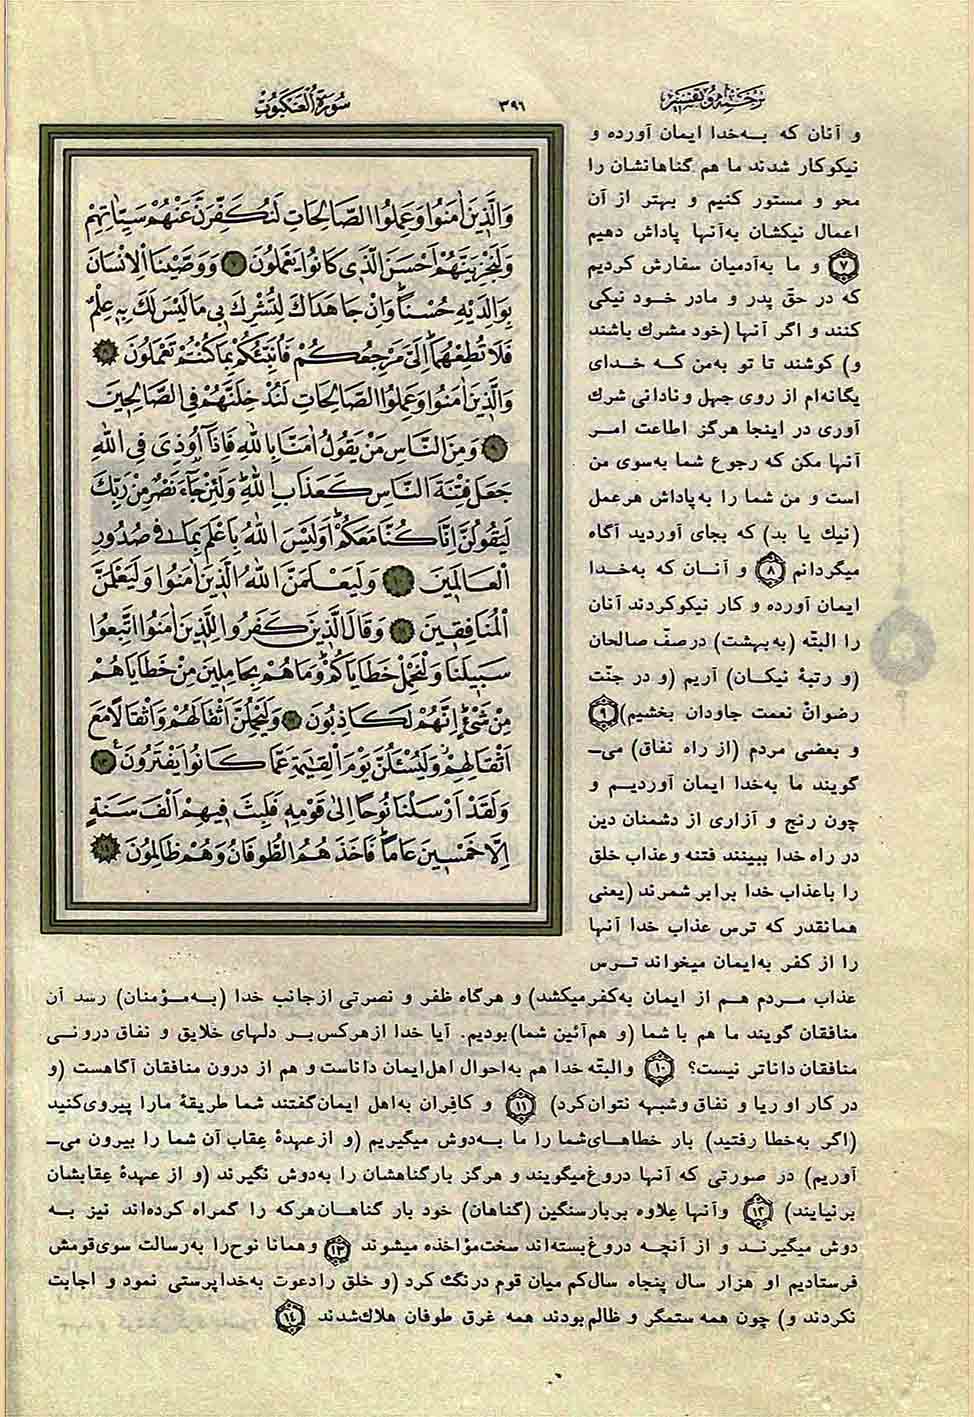 ترجمه و تفسیر
٣٩٦
سُورَةُ الْعَنْكَبُوتِ
وَالَّذِينَ اٰمَنُوا وَعَمِلُوا الصَّالِحَاتِ لَنُكَفِّرَنَّ عَنْهُمْ سَيِّئَاتِهِمْ
وَلَنَجْزِيَنَّهُمْ اَحْسَنَ الَّذٖى كَانُوا يَعْمَلُونَ ٧ وَوَصَّيْنَا الْاِنْسَانَ
بِوَالِدَيْهِ حُسْنًا وَاِنْ جَاهَدَاكَ لِتُشْرِكَ بٖى مَا لَيْسَ لَكَ بِهٖ عِلْمٌ
فَلَا تُطِعْهُمَا اِلَىَّ مَرْجِعُكُمْ فَاُنَبِّئُكُمْ بِمَا كُنْتُمْ تَعْمَلُونَ ٨
وَالَّذِينَ اٰمَنُوا وَعَمِلُوا الصَّالِحَاتِ لَنُدْخِلَنَّهُمْ فِى الصَّالِحٖينَ
٩ وَمِنَ النَّاسِ مَنْ يَقُولُ اٰمَنَّا بِاللّٰهِ فَاِذَآ اُوذِىَ فِى اللّٰهِ
جَعَلَ فِتْنَةَ النَّاسِ كَعَذَابِ اللّٰهِ وَلَئِنْ جَآءَ نَصْرٌ مِنْ رَبِّكَ
لَيَقُولُنَّ اِنَّا كُنَّا مَعَكُمْ اَوَلَيْسَ اللّٰهُ بِاَعْلَمَ بِمَا فٖى صُدُورِ
الْعَالَمٖينَ ١٠ وَلَيَعْلَمَنَّ اللّٰهُ الَّذٖينَ اٰمَنُوا وَلَيَعْلَمَنَّ
الْمُنَافِقٖينَ ١١ وَقَالَ الَّذٖينَ كَفَرُوا لِلَّذٖينَ اٰمَنُوا اتَّبِعُوا
سَبٖيلَنَا وَلْنَحْمِلْ خَطَايَاكُمْ وَمَا هُمْ بِحَامِلٖينَ مِنْ خَطَايَاهُمْ
مِنْ شَىْءٍ اِنَّهُمْ لَكَاذِبُونَ ١٢ وَلَيَحْمِلُنَّ اَثْقَالَهُمْ وَاَثْقَالًا مَعَ
اَثْقَالِهِمْ وَلَيُسْئَلُنَّ يَوْمَ الْقِيٰمَةِ عَمَّا كَانُوا يَفْتَرُونَ ١٣
وَلَقَدْ اَرْسَلْنَا نُوحًا اِلٰى قَوْمِهٖ فَلَبِثَ فٖيهِمْ اَلْفَ سَنَةٍ
اِلَّا خَمْسٖينَ عَامًا فَاَخَذَهُمُ الطُّوفَانُ وَهُمْ ظَالِمُونَ ١٤
و آنان که به‌خدا ایمان آورده و
نیکوکار شدند ما هم گناهانشان را
محو و مستور کنیم و بهتر از آن
اعمال نیکشان به‌آنها پاداش دهیم
٧ و ما به‌آدمیان سفارش کردیم
که در حقّ پدر و مادر خود نیکی
کنند و اگر آنها (خود مشرك باشند
و) کوشند تا تو به‌من که خدای
یگانه‌ام از روی جهل و نادانی شرك
آوری در اینجا هرگز اطاعت امر
آنها مکن که رجوع شما به‌سوی من
است و من شما را به‌پاداش هرعمل
(نیك یا بد) که بجای آوردید آگاه
میگردانم ٨ و آنان که به‌خدا
ایمان آورده و کار نیکوکردند آنان
را البتّه (به‌بهشت) درصفّ صالحان
(و رتبهٔ نیکان) آریم (و در جنّت
رضوان نعمت جاودان بخشیم) ٩
و بعضی مردم (از راه نفاق) می‌ـ
گویند ما به‌خدا ایمان آوردیم و
چون رنج و آزاری از دشمنان دین
در راه خدا ببینند فتنه و عذاب خلق
را باعذاب خدا برابر شمرند (یعنی
همانقدر که ترس عذاب خدا آنها
را از کفر به‌ایمان میخواند ترس
عذاب مردم هم از ایمان به‌کفرمیکشد) و هرگاه ظفر و نصرتی ازجانب خدا (به‌مؤمنان) رسد آن
منافقان گویند ما هم با شما (و هم‌آئین شما) بودیم. آیا خدا ازهرکس‌بر دلهای خلایق و نفاق درونی
منافقان داناتر نیست؟ ١٠ والبتّه خدا هم به‌احوال اهل‌ایمان داناست و هم از درون منافقان آگاهست (و
در کار او ریا و نفاق و شبهه نتوان‌کرد) ١١ و کافران به‌اهل ایمان‌گفتند شما طریقهٔ مارا پیروی‌کنید
(اگر به‌خطا رفتید) بار خطاهای‌شما را ما به‌دوش میگیریم (و ازعهدهٔ عِقاب آن شما را بیرون می‌ـ
آوریم) در صورتی که آنها دروغ‌میگویند و هرگز بارگناهشان را به‌دوش نگیرند (و از عهدهٔ عِقابشان
برنیایند) ١٢ وآنها عِلاوه بربارسنگین (گناهان) خود بار گناهان‌هرکه را گمراه کرده‌اند نیز به
دوش میگیرند و از آنچه دروغ‌بسته‌اند سخت‌مؤاخذه میشوند ١٣ وهمانا نوح‌را به‌رسالت سوی‌قومش
فرستادیم او هزار سال پنجاه سال‌کم میان قوم درنگ کرد (و خلق رادعوت به‌خداپرستی نمود و اجابت
نکردند و) چون همه ستمگر و ظالم‌بودند همه غرق طوفان هلاك‌شدند ١٤